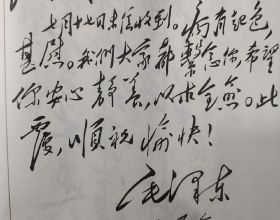 七月十七日来信收到。病有起色，
甚慰。我们大家都系念你，希望
你安心静养，以求全愈。此
覆，顺祝愉快！
毛泽东